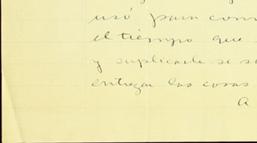 usó para con
el tiempo que
y suplicarle se s
entregar las cosas
A